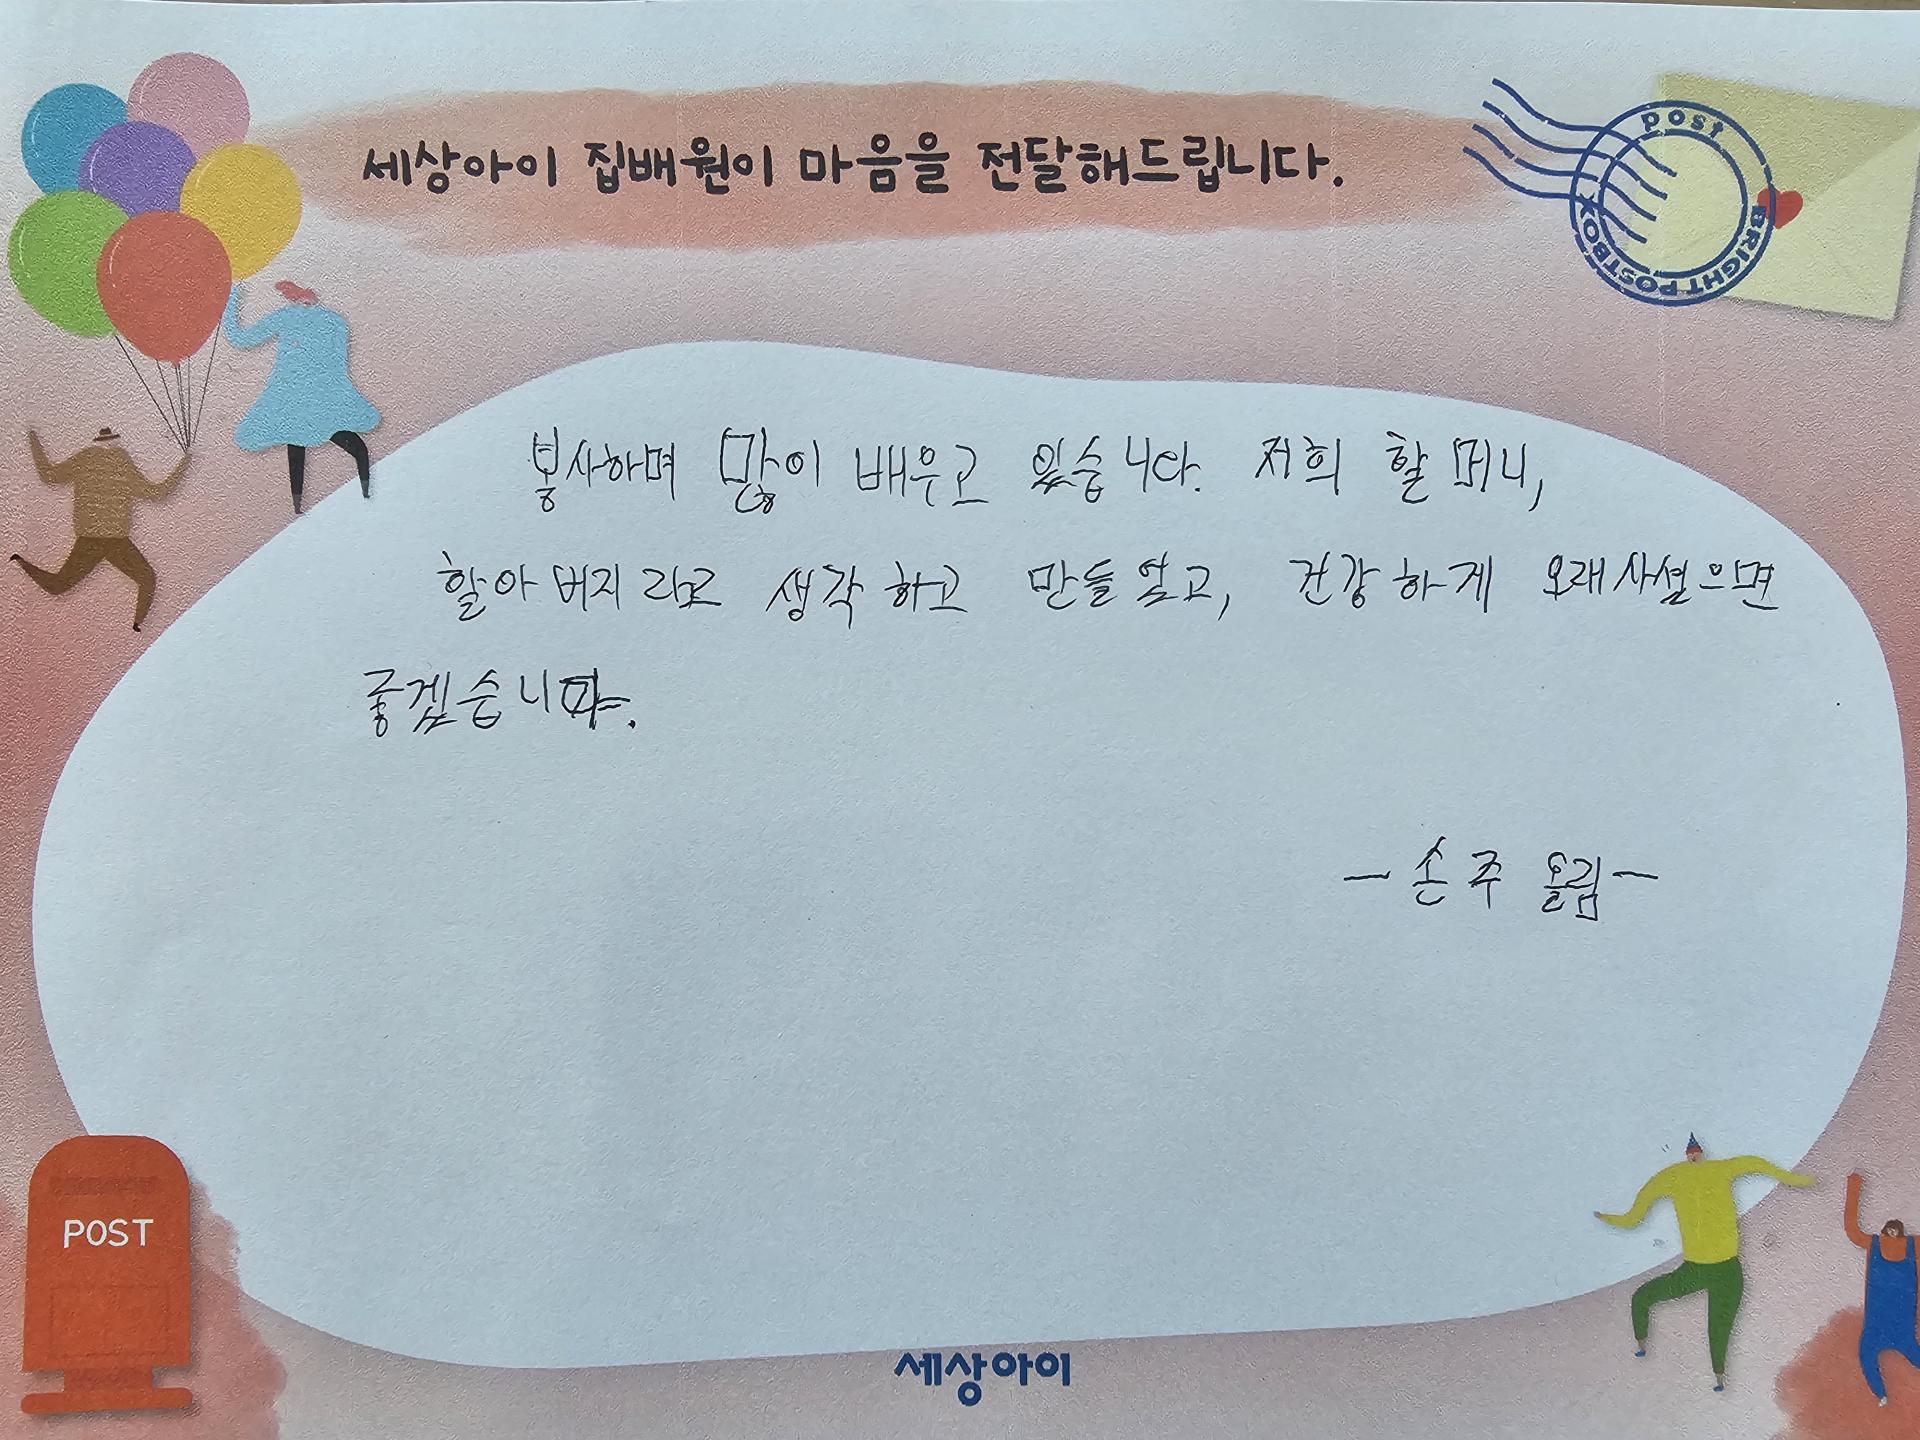 세상아이 집배원이 마음을 전달해드립니다.
post
BRIGHT POSTBOX
봉사하며 많이 배우고 있습니다. 저희 할머니,
할아버지라고 생각하고 만들었고, 건강하게 오래사셨으면
좋겠습니다.
- 손주 올림 -
POST
세상아이